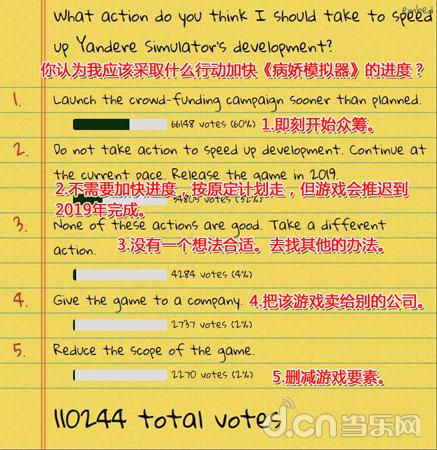 What action do you think I should take to speed
up Yandere Simulator's development?
你认为我应该采取什么行动加快《病娇模拟器》的进度？
1. Launch the crowd-funding campaign sooner than planned.
66148 votes (60%)
1.即刻开始众筹。
2. Do not take action to speed up development. Continue at
the current pace. Release the game in 2019.
2.不需要加快进度，按原定计划走，但游戏会推迟到
2019年完成。
34805 votes (32%)
3. None of these actions are good. Take a different
action.
3.没有一个想法合适。去找其他的办法。
4284 votes (4%)
4. Give the game to a company.
4.把该游戏卖给别的公司。
2737 votes (2%)
5. Reduce the scope of the game.
2270 votes (2%)
5.删减游戏要素。
110244 total votes
d.cn当乐网